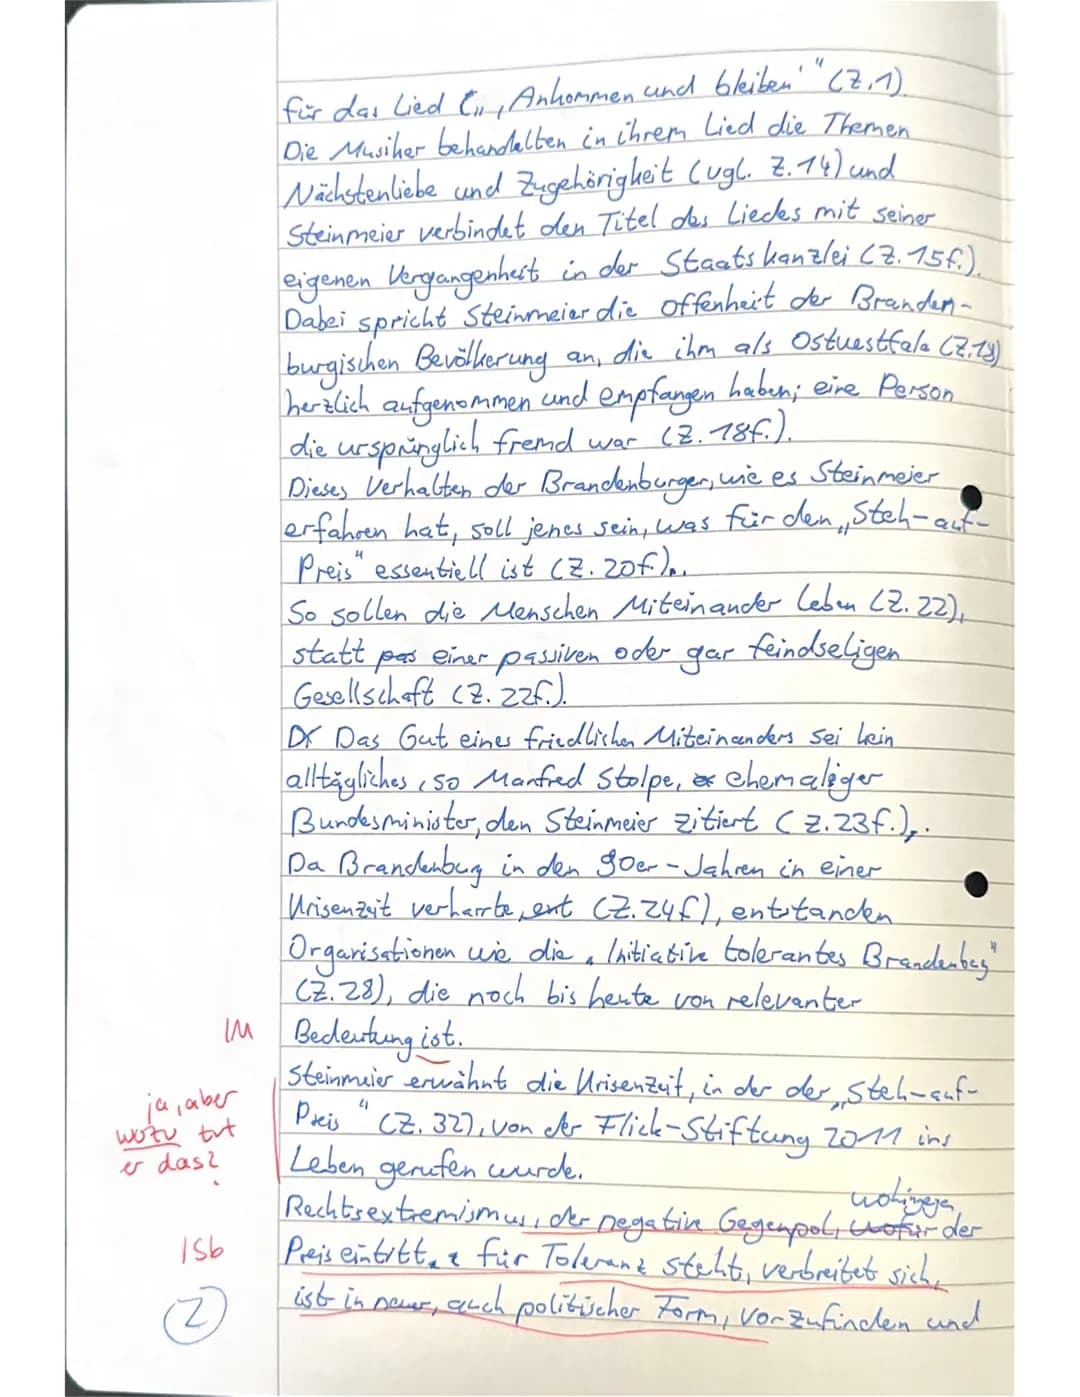 für das Lied („‚Ankommen und bleiben'" (Z.1)
Die Musiker behandelten in ihrem Lied die Themen
Nächstenliebe und Zugehörigkeit (vgl. Z.14) und
Steinmeier verbindet den Titel des Liedes mit seiner
eigenen Vergangenheit in der Staatskanzlei (Z.15f.).
Dabei spricht Steinmeier die Offenheit der Branden-
burgischen Bevölkerung an, die ihm als Ostwestfale (Z.18)
herzlich aufgenommen und empfangen haben; eine Person
die ursprünglich fremd war (Z.18f.).
Dieses Verhalten der Brandenburger, wie es Steinmeier
erfahren hat, soll jenes sein, was für den „Steh-auf-
Preis" essentiell ist (Z.20f.).
So sollen die Menschen Miteinander leben (Z.22),
statt einer passiven oder gar feindseligen
Gesellschaft (Z.22f.).
Das Gut eines friedlichen Miteinanders sei kein
alltägliches, so Manfred Stolpe, ehemaliger
Bundesminister, den Steinmeier zitiert (Z.23f.).
Da Brandenbug in den 90er-Jahren in einer
Krisenzeit verharrte, (Z.24f), entstanden
Organisationen wie die „Initiative tolerantes Brandenbeg"
(Z.28), die noch bis heute von relevanter
IM Bedeutung ist.
Steinmeier erwähnt die Krisenzeit, in der der „Steh-auf-
ja, aber
Preis" (Z.32), von der Flick-Stiftung 2011 ins
wozu tut
er das?
Leben gerufen wurde.
wohingegen
Rechtsextremismus, der negative Gegenpol, wofür der
ISb Preis eintritt, für Toleranz steht, verbreitet sich,
2 ist in neuer, auch politischer Form, vorzufinden und